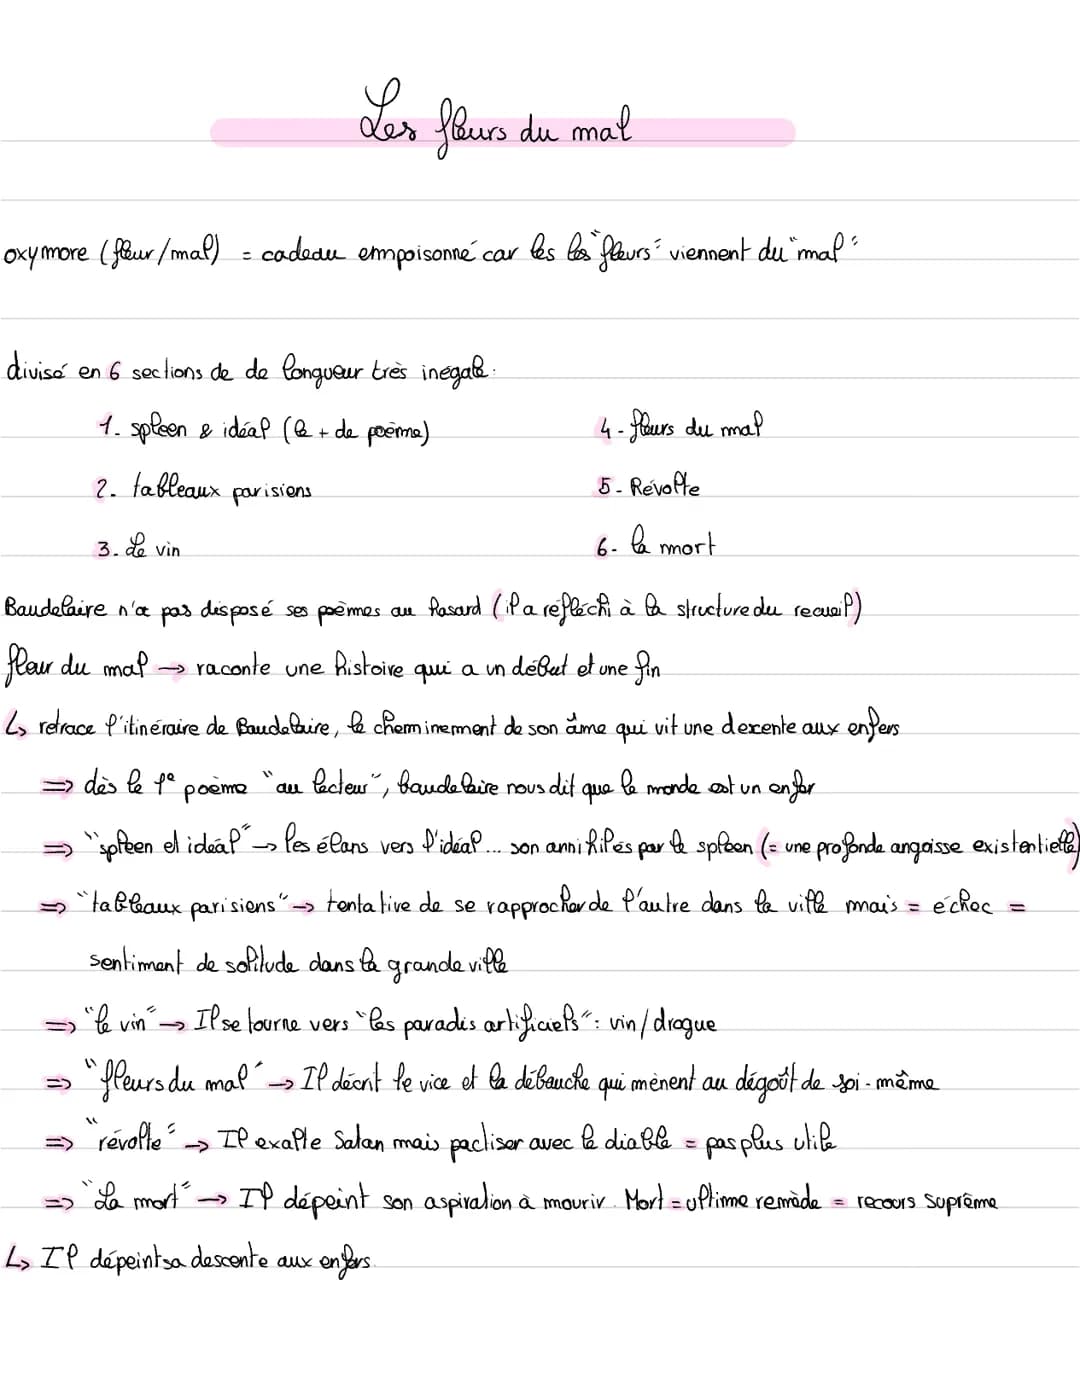 Les fleurs du mal
oxymore (fleur/mal) = cadeau empoisonné car les les "fleurs" viennent du "mal"
divisé en 6 sections de de longueur très inégale :
1. spleen & idéal (le + de poème)
4 - fleurs du mal
2. tableaux parisiens
5 - Révolte
3. Le vin
6 - la mort
Baudelaire n'a pas disposé ses poèmes au hasard (il a réfléchi à la structure du recueil)
fleur du mal → raconte une histoire qui a un début et une fin
↳ retrace l'itinéraire de Baudelaire, le cherminement de son âme qui vit une descente aux enfers
⇒ dès le 1e poème "au lecteur", baudelaire nous dit que le monde est un enfer
⇒ "spleen et idéal" → les élans vers l'idéal... son annihilés par le spleen (= une profonde angoisse existentielle)
⇒ "tableaux parisiens" → tentative de se rapprocher de l'autre dans la ville mais = échec =
sentiment de solitude dans la grande ville
⇒ "le vin" → Il se tourne vers "les paradis artificiels" : vin/drogue
⇒ "fleurs du mal" → Il décrit le vice et la débauche qui mènent au dégoût de soi-même
⇒ "révolte" → Il exalte Satan mais pactiser avec le diable = pas plus utile
⇒ "La mort" → Il dépeint son aspiration à mourir. Mort = ultime remède = recours suprême
↳ Il dépeint sa descente aux enfers.